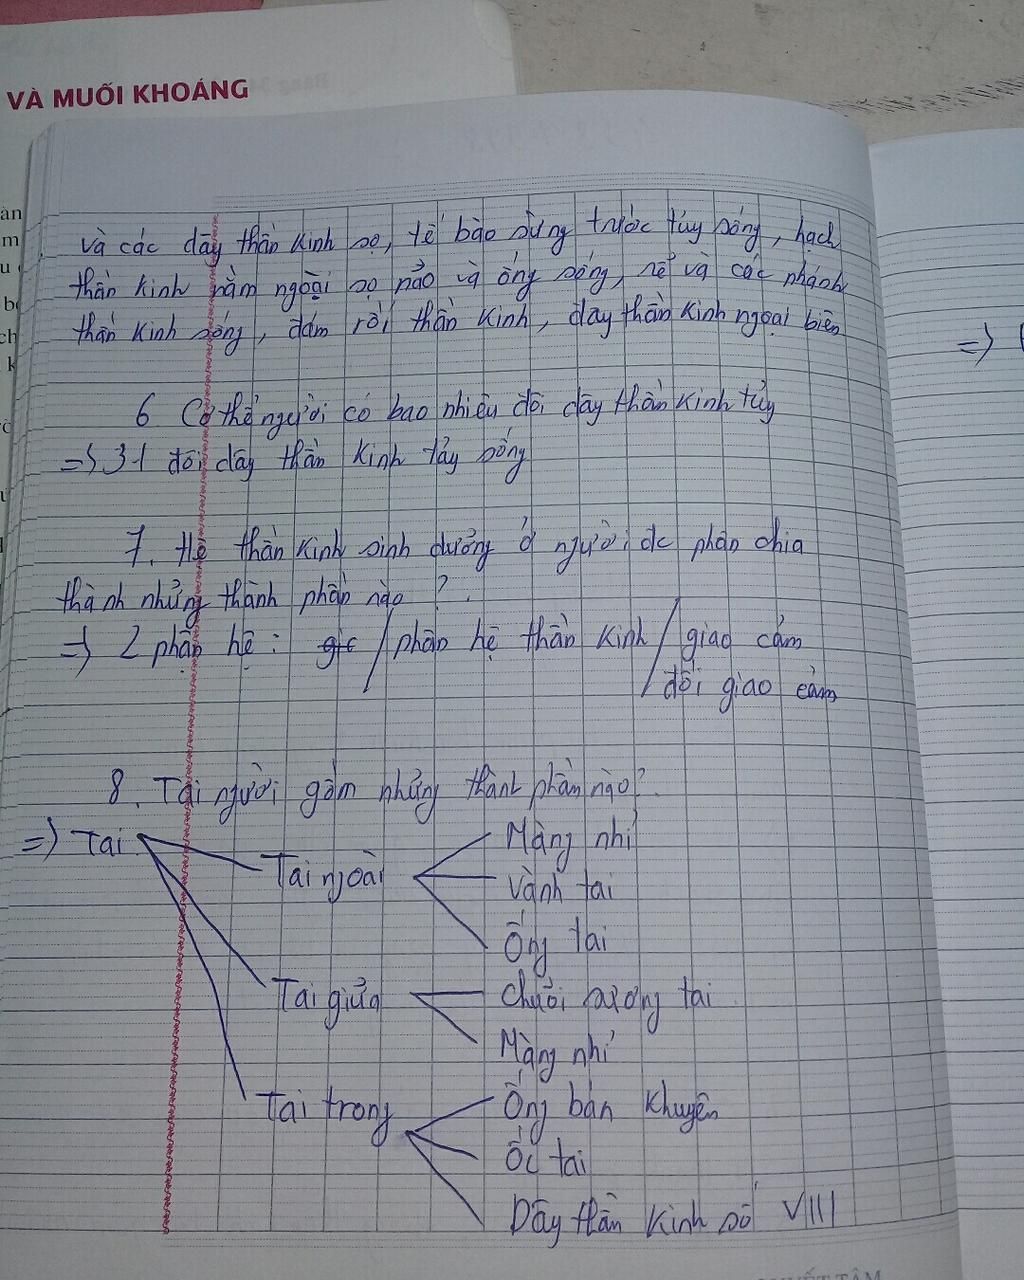 VÀ MUỐI KHOÁNG
và các dây thần kinh sọ, tế bào sừng trước tủy sống, hạch
thần kinh nằm ngoài sọ não và ống sống, rễ và các nhánh
thần kinh sống, đám rối thần kinh, dây thần kinh ngoại biên
6 Cơ thể người có bao nhiêu đôi dây thần kinh tủy
=> 31 đôi dây thần kinh tủy sống
7. Hệ thần kinh sinh dưỡng ở người đc phân chia
thành những thành phần nào ?
=> 2 phân hệ : / phân hệ thần kinh / giao cảm
/ đối giao cảm
8. Tai người gồm những thành phần nào?
=> Tai
Tai ngoài
Màng nhĩ
Vành tai
Ống tai
Tai giữa
Chuỗi xương tai
Màng nhĩ
Tai trong
Ống bán khuyên
Ốc tai
Dây thần kinh số VIII
=>